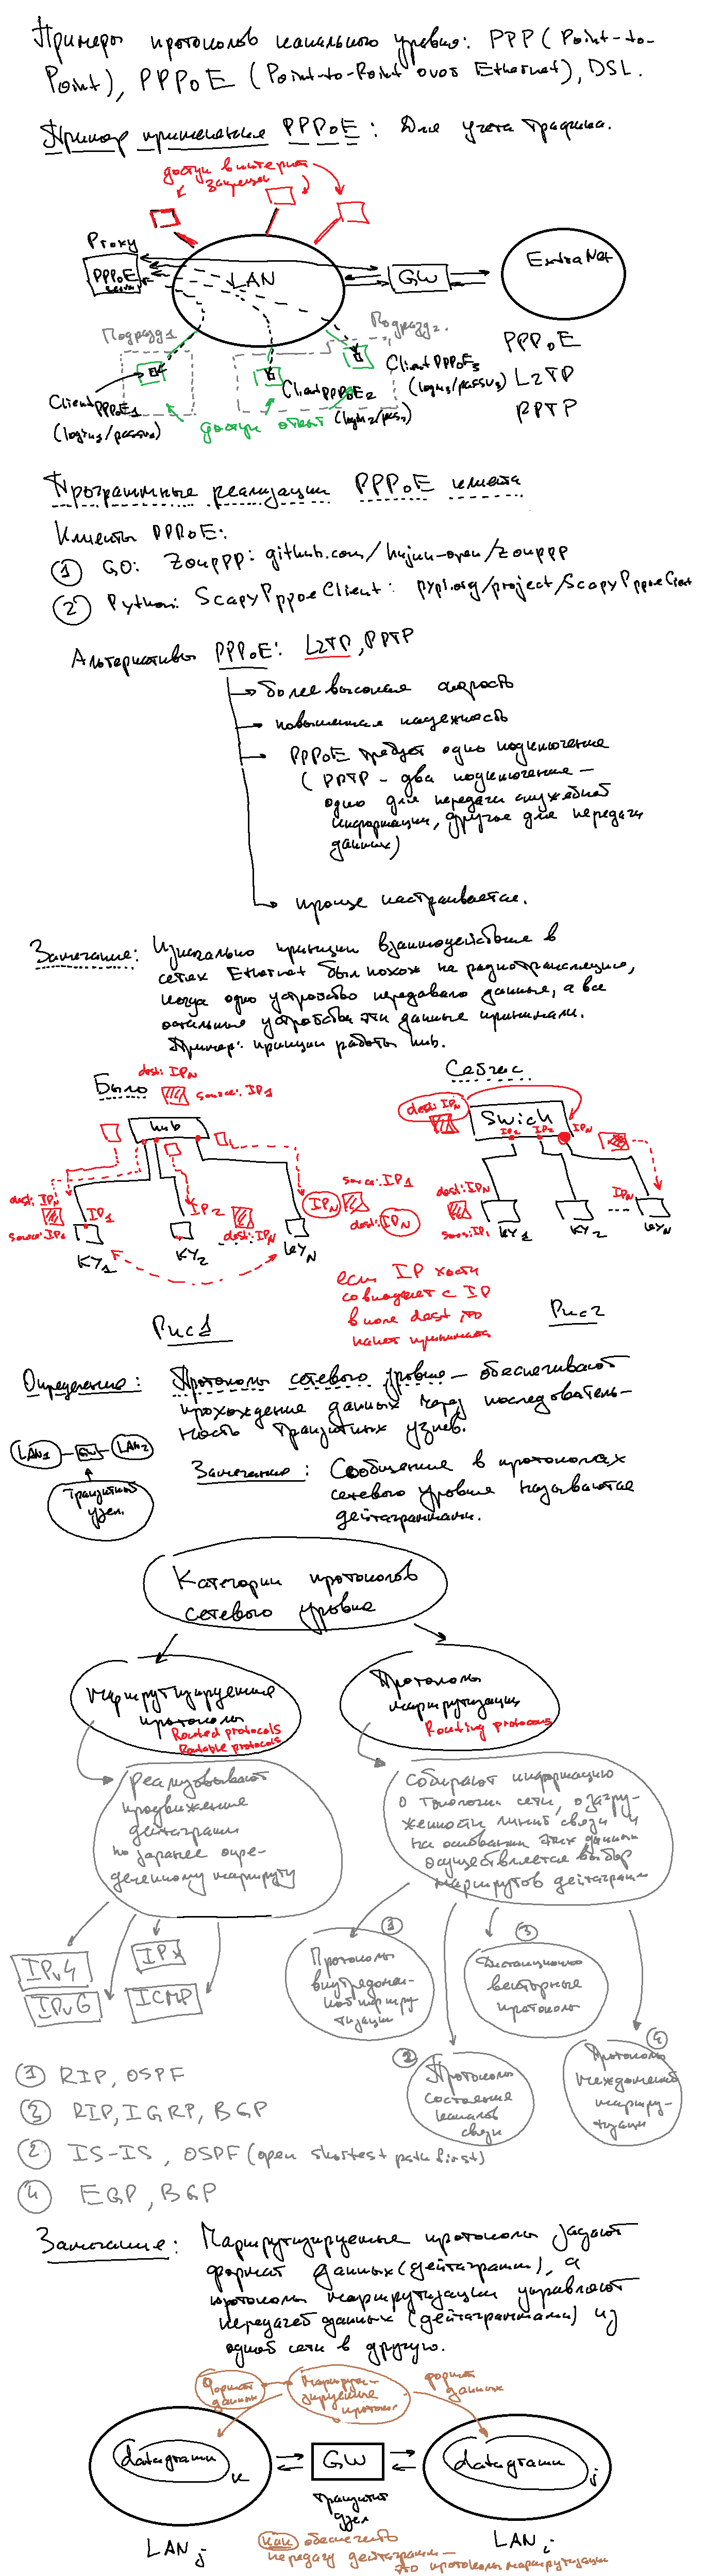 Примеры протоколов канального уровня: PPP (Point-to-
Point), PPPoE (Point-to-Point over Ethernet), DSL.
Пример применения PPPoE: Для учета трафика.
доступ в интернет
запрещен
Proxy
PPPoE
server
LAN
GW
ExtraNet
Подразд1
Подразд2
PPPoE
L2TP
PPTP
Client PPPoE1
(login1/passw1)
Client PPPoE2
(login2/pass2)
Client PPPoE3
(login3/passw3)
доступ открыт
Программные реализации PPPoE клиента
Клиенты PPPoE:
① GO: ZouPPP: github.com/hujun-open/zouppp
② Python: ScapyPppoeClient: pypi.org/project/ScapyPppoeClient
Альтернативы PPPoE: L2TP, PPTP
более высокая скорость
повышенная надежность
PPPoE требует одно подключение
(PPTP - два подключения -
одно для передачи служебной
информации, другое для передачи
данных)
проще настраивается.
Замечание: Изначально принцип взаимодействия в
сетях Ethernet был похож на радиотрансляцию,
когда одно устройство передавало данные, а все
остальные устройства эти данные принимали.
Пример: принцип работы hub.
Было
dest: IPN
source: IP1
Сейчас
hub
dest: IPN
Swich
IP1
IP2
IPN
dest: IPN
source: IP1
IP1
IP2
dest: IPN
IPN
source: IP1
dest: IPN
КУ1
КУ2
КУN
dest: IPN
source: IP1
IPN
КУ1
КУ2
КУN
если IP хоста
совпадает с IP
в поле dest, то
пакет принимаем
Рис1
Рис2
Определение: Протоколы сетевого уровня - обеспечивают
прохождение данных через последователь-
ность транзитных узлов.
LAN1
GW
LAN2
Транзитный
узел
Замечание: Сообщение в протоколах
сетевого уровня называются
дейтаграммами.
Категории протоколов
сетевого уровня
Маршрутизируемые
протоколы
Routed protocols
Routable protocols
Протоколы
маршрутизации
Routing protocols
Реализовывают
продвижение
дейтаграмм
по заранее опре-
деленному маршруту
собирают информацию
о топологии сети, о загру-
женности линий связи и
на основании этих данных
осуществляется выбор
маршрутов дейтаграмм
IPv4
IPv6
IPX
ICMP
①
Протоколы
внутридомен-
ной маршру-
тизации
③
Дистанционно
векторные
протоколы
②
Протоколы
состояния
каналов
связи
④
Протоколы
междоменной
маршру-
тизации
① RIP, OSPF
③ RIP, IGRP, BGP
② IS-IS, OSPF (open shortest path first)
④ EGP, BGP
Замечание: Маршрутизируемые протоколы задают
формат данных (дейтаграмм), а
протоколы маршрутизации управляют
передачей данных (дейтаграммами) из
одной сети в другую.
Формат
данных
Маршрути-
зируемые
протокол
формат
данных
datagramm
k
GW
datagramm
j
транзитн
узел
LAN j
LAN i
как обеспечить
передачу дейтаграмм -
это протоколы маршрутизации